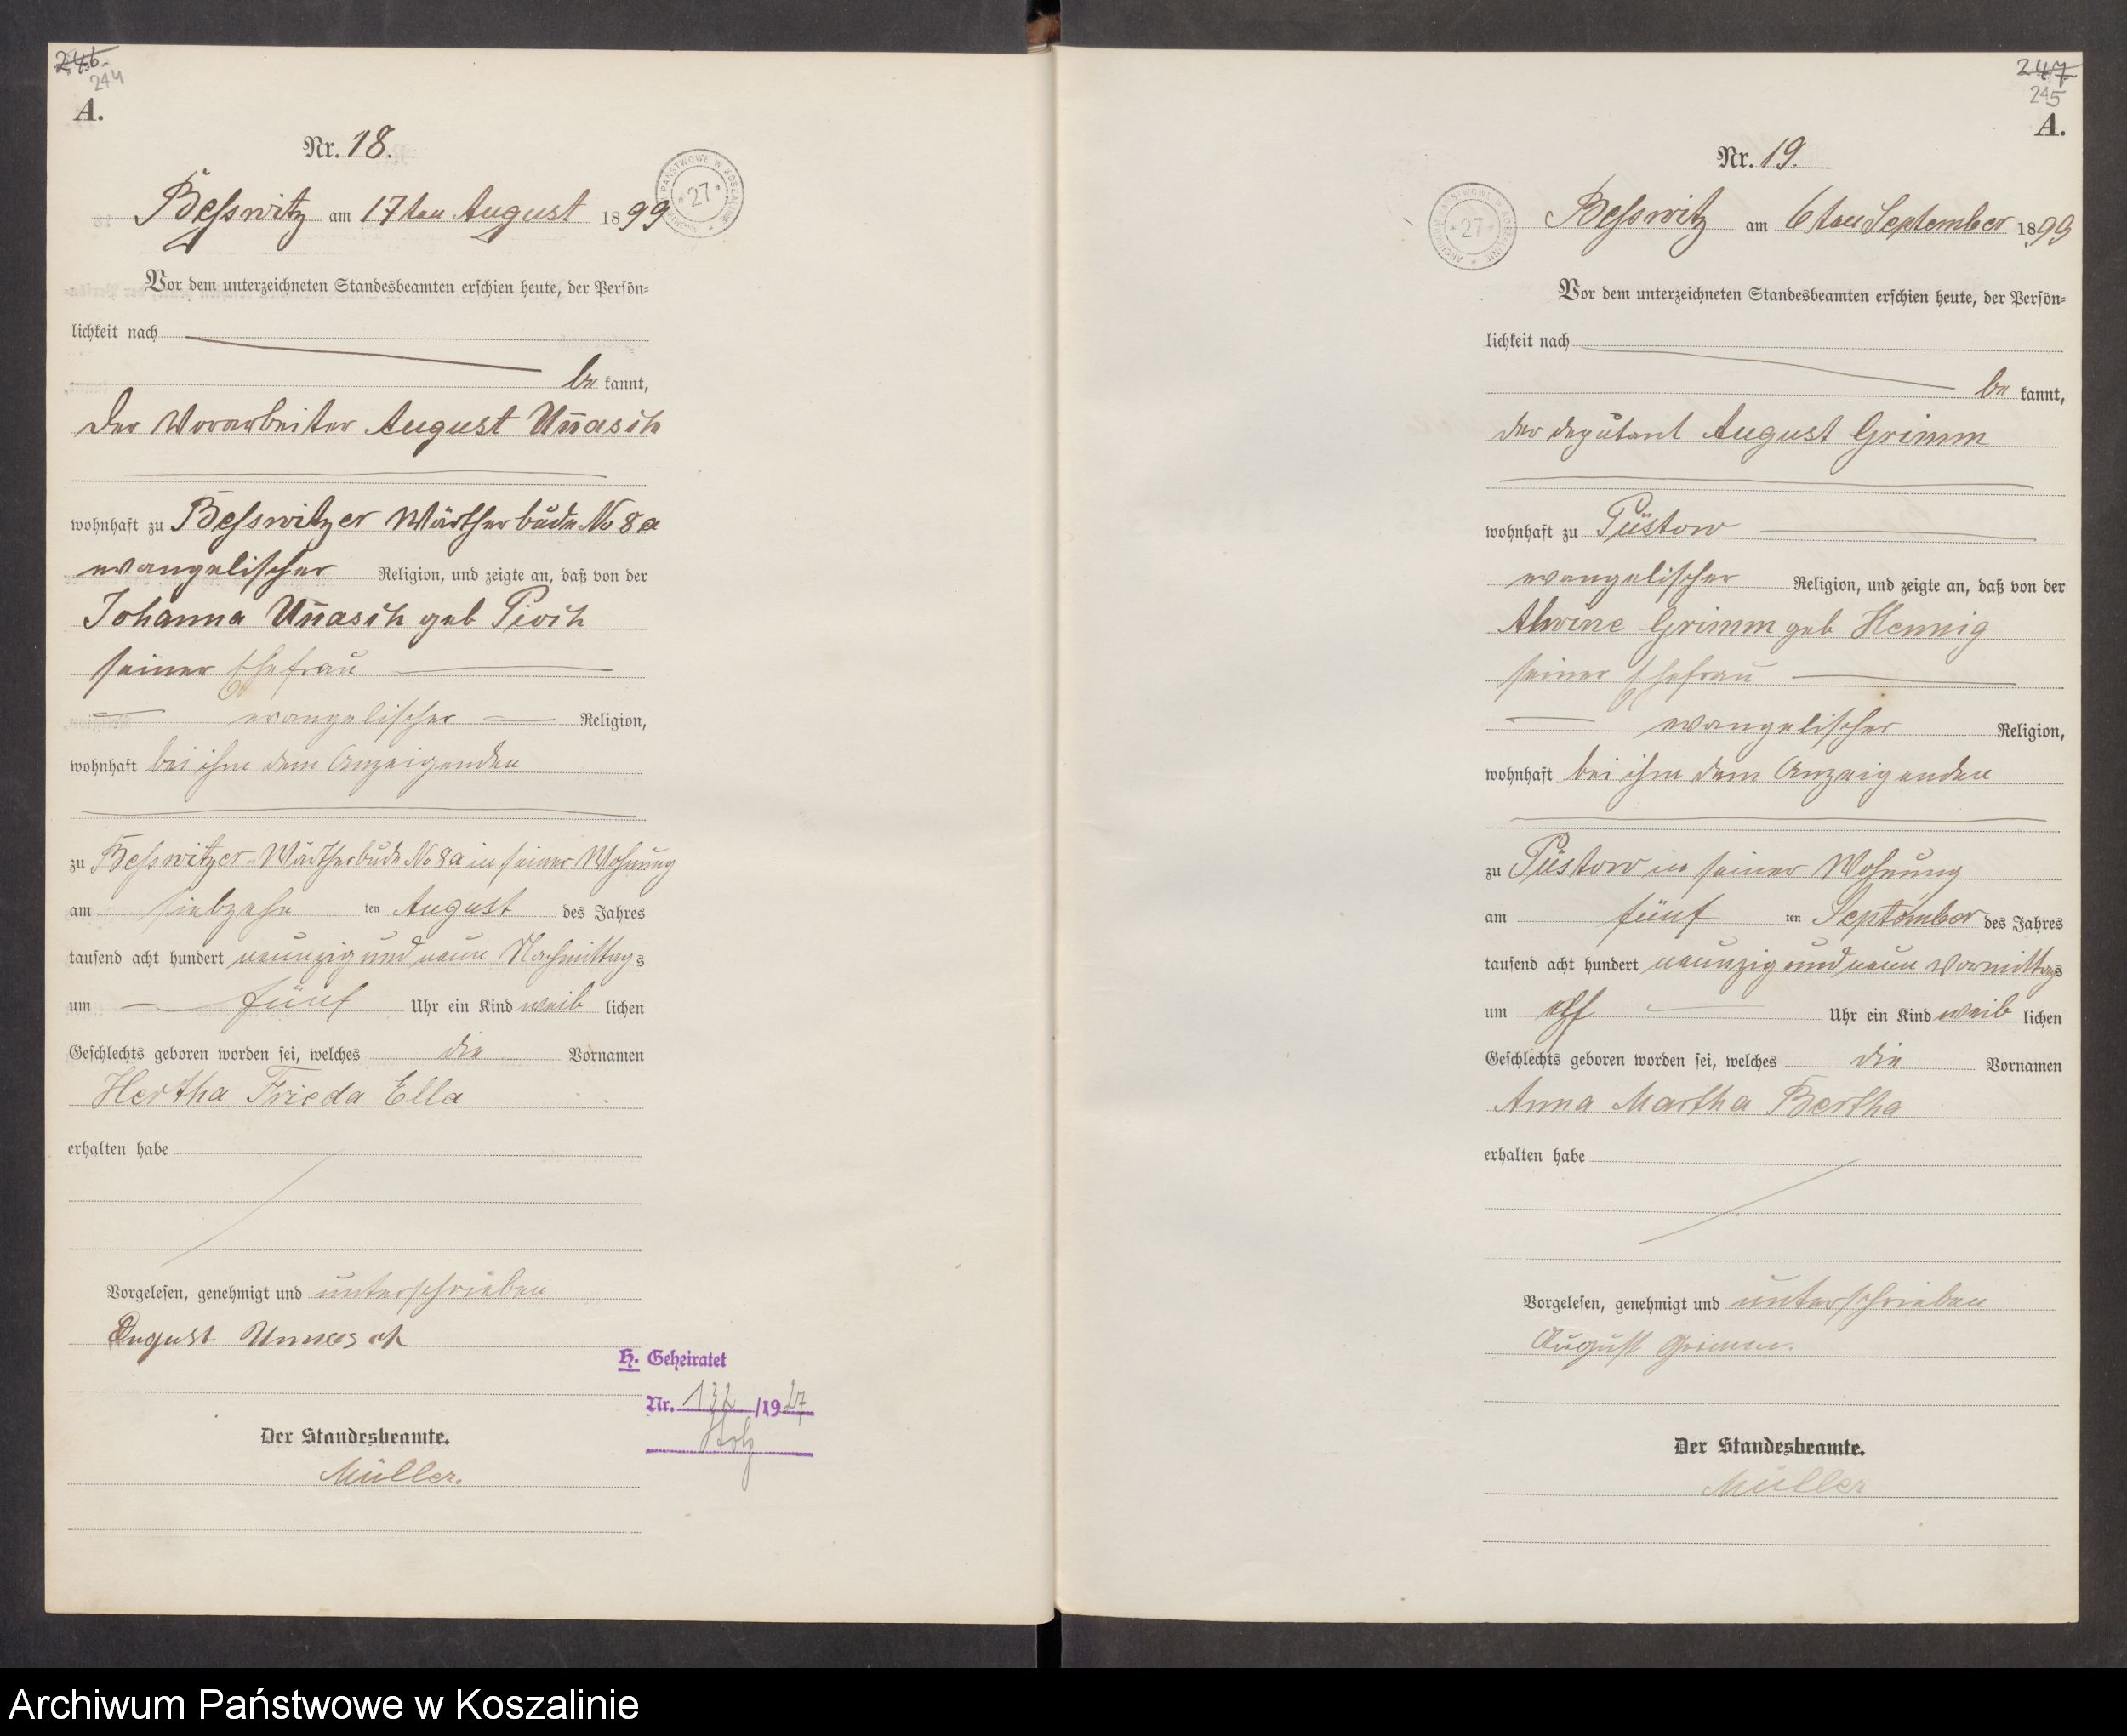 246.
244
A.
Nr. 18.
Beſswitz am 17ten August 1899
ARCHIWUM PAŃSTWOWE W KOSZALINIE * 27 *
Vor dem unterzeichneten Standesbeamten erſchien heute, der Perſön=
lichkeit nach
be kannt,
der Vorarbeiter August Un̄asch
wohnhaft zu Beſswitzer Wärtherbude No 8a
evangelischer Religion, und zeigte an, daß von der
Johanna Un̄asch geb Pioch
seiner Ehefrau
evangelischer Religion,
wohnhaft bei ihm dem Anzeigenden
zu Beſswitzer-Wärtherbude No 8a in seiner Wohnung
am siebzehn ten August des Jahres
tauſend acht hundert neunzig und neun Nachmittags
um fünf Uhr ein Kind weib lichen
Geſchlechts geboren worden ſei, welches die Vornamen
Hertha Frieda Ella
erhalten habe
Vorgeleſen, genehmigt und unterschrieben
August Unnasch
H. Geheiratet
Nr. 132 /1927
Der Standesbeamte.
Müller.
247
245
A.
Nr. 19.
Beſswitz am 6ten September 1899
ARCHIWUM PAŃSTWOWE W KOSZALINIE * 27 *
Vor dem unterzeichneten Standesbeamten erſchien heute, der Perſön=
lichkeit nach
be kannt,
der Deputant August Grimm
wohnhaft zu Püstow
evangelischer Religion, und zeigte an, daß von der
Alwine Grimm geb Hennig
seiner Ehefrau
evangelischer Religion,
wohnhaft bei ihm dem Anzeigenden
zu Püstow in seiner Wohnung
am fünf ten September des Jahres
tauſend acht hundert neunzig und neun Vormittags
um elf Uhr ein Kind weib lichen
Geſchlechts geboren worden ſei, welches die Vornamen
Anna Martha Bertha
erhalten habe
Vorgeleſen, genehmigt und unterschrieben
August Grimm.
Der Standesbeamte.
Müller
Archiwum Państwowe w Koszalinie